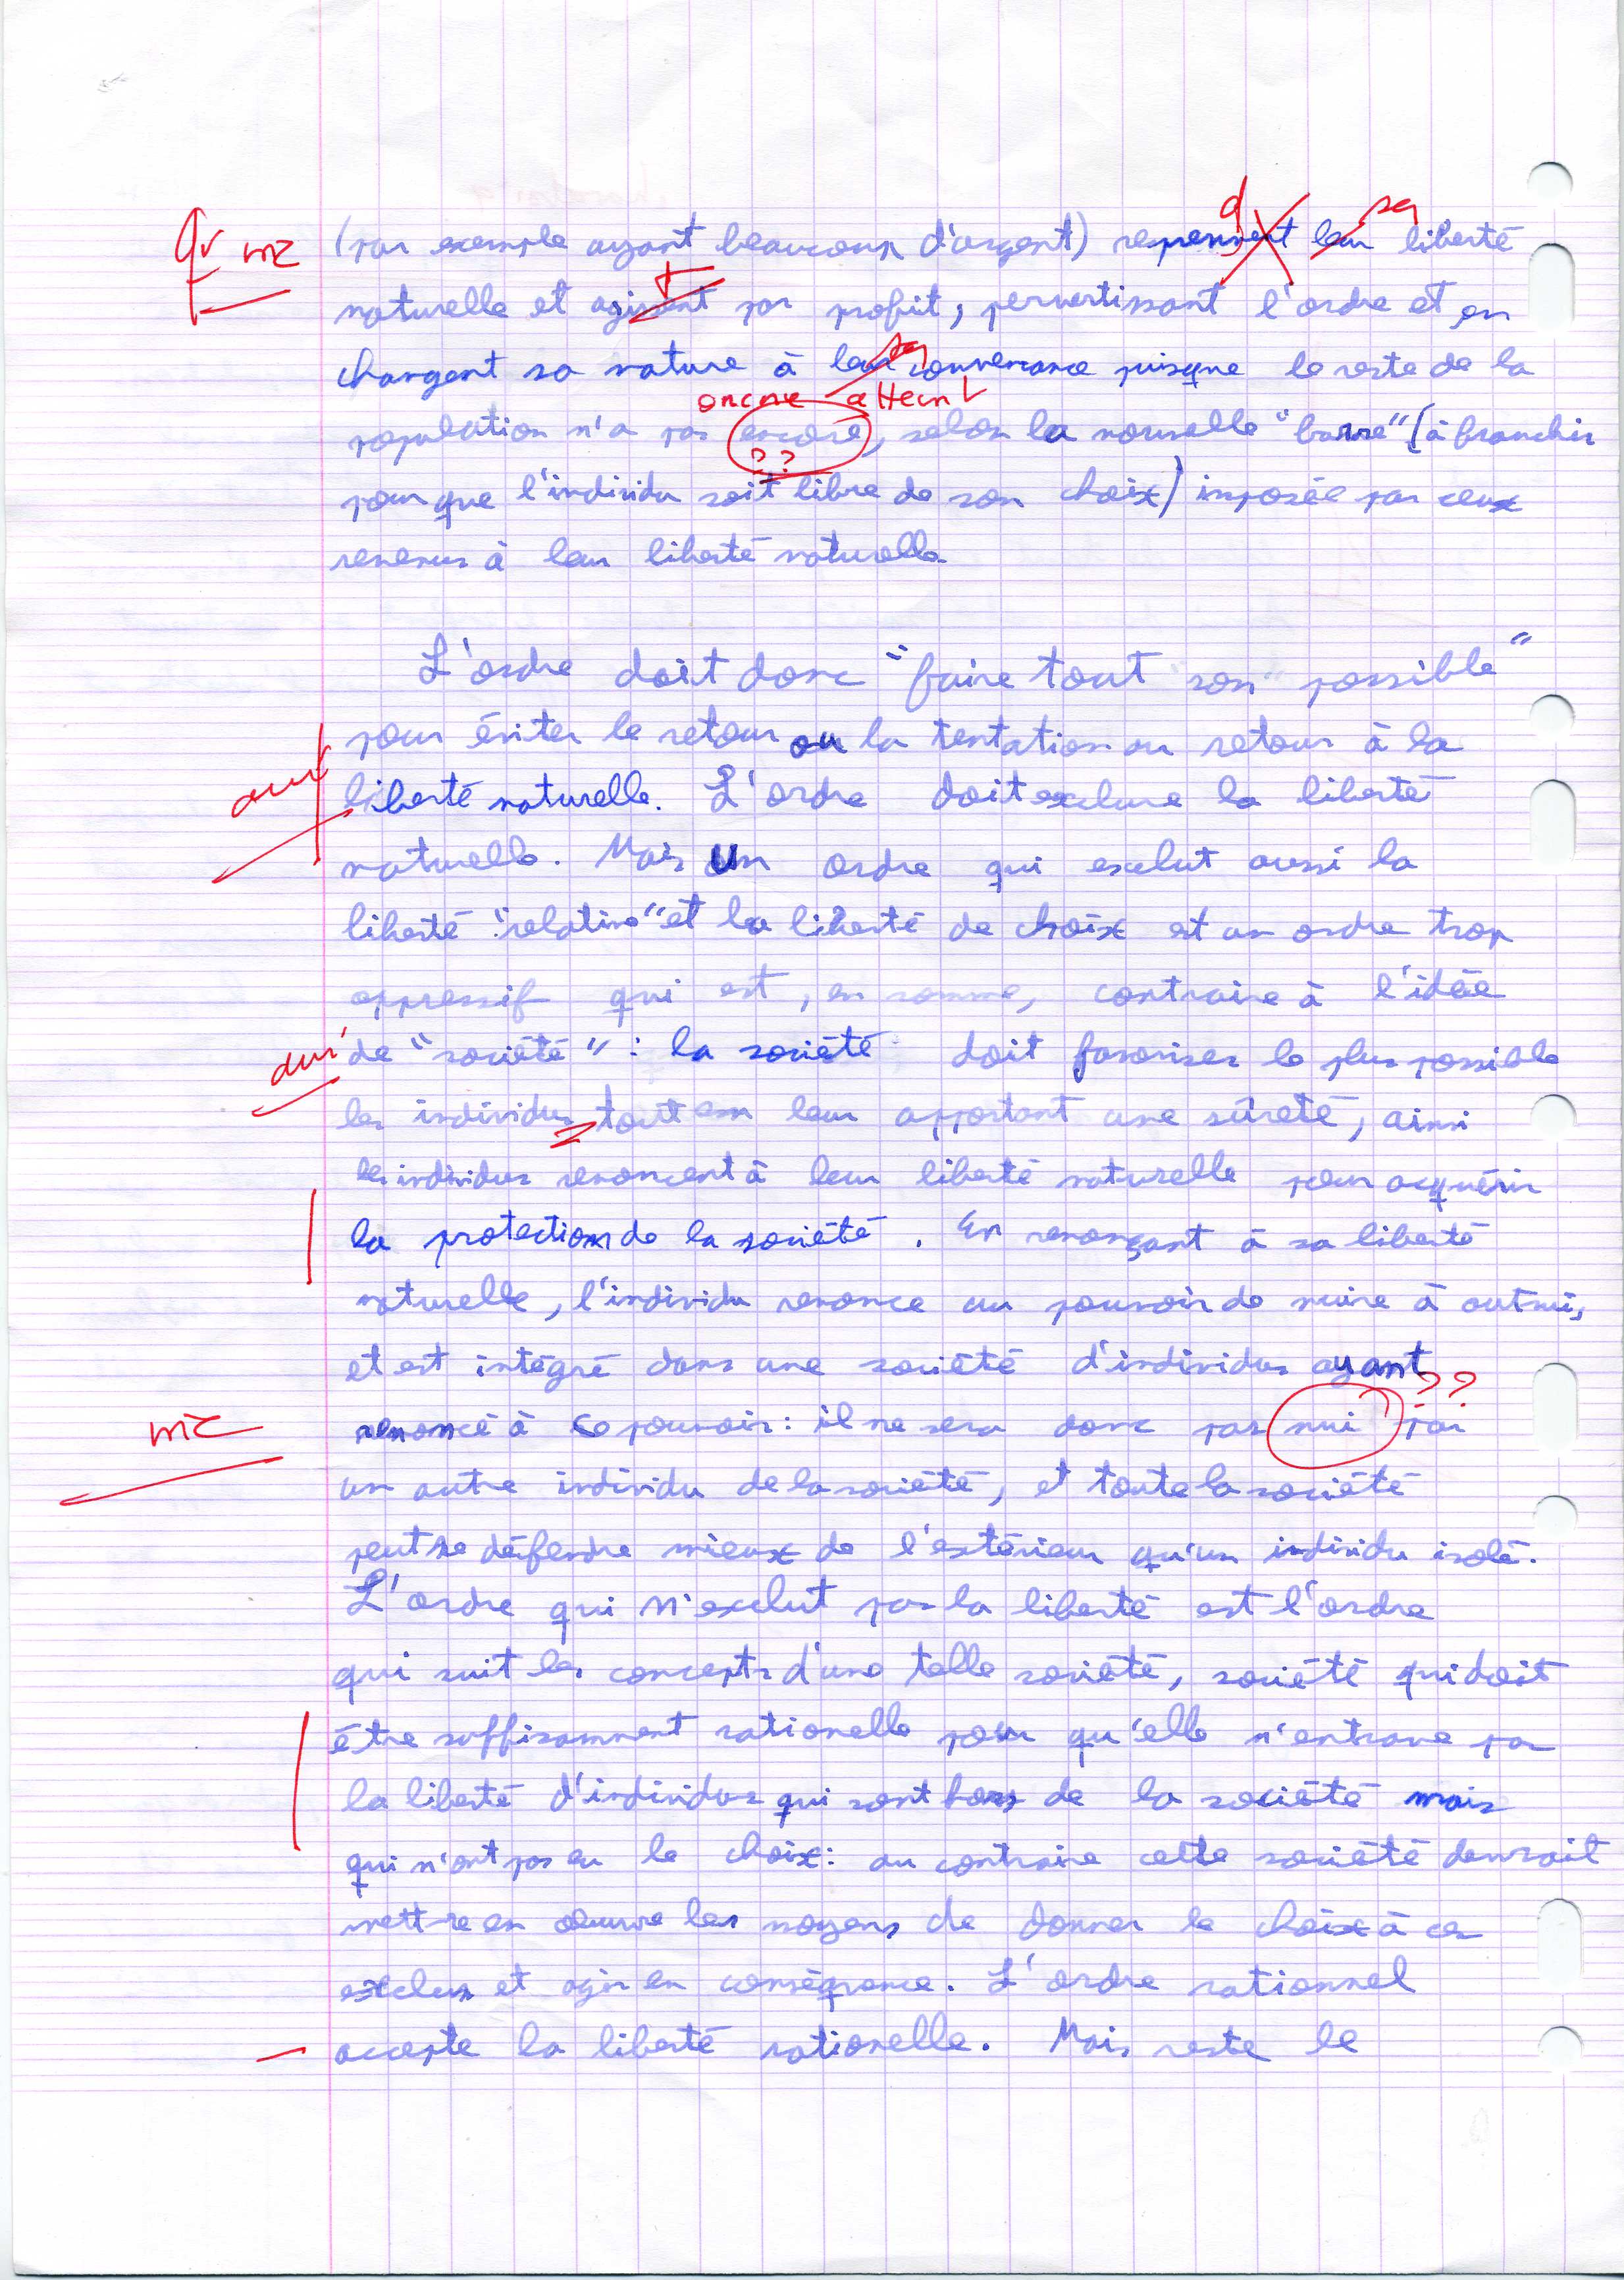 (par exemple ayant beaucoup d'argent) reprennent leur liberté
naturelle et agissent par profit, pervertissant l'ordre et en
changent sa nature à leur convenance puisque le reste de la
encore atteint
population n'a pas encore, selon la nouvelle "barre" (à franchir
??
pour que l'individu soit libre de son choix) imposée par ceux
revenus à leur liberté naturelle.
L'ordre doit donc "faire tout "son" possible"
pour éviter le retour ou la tentation au retour à la
liberté naturelle. L'ordre doit exclure la liberté
naturelle. Mais un ordre qui exclut aussi la
liberté "relative" et la liberté de choix est un ordre trop
oppressif qui est, en somme, contraire à l'idée
de "société" : la société doit favoriser le plus possible
les individus tout en leur apportant une sûreté, ainsi
les individus renoncent à leur liberté naturelle pour acquérir
la protection de la société. En renonçant à sa liberté
naturelle, l'individu renonce au pouvoir de nuire à autrui,
et est intégré dans une société d'individus ayant
??
renoncé à ce pouvoir : il ne sera donc pas nui par
un autre individu de la société, et toute la société
peut se défendre mieux de l'extérieur qu'un individu isolé.
L'ordre qui n'exclut pas la liberté est l'ordre
qui suit les concepts d'une telle société, société qui doit
être suffisamment rationelle pour qu'elle n'entrave pas
la liberté d'individus qui sont hors de la société mais
qui n'ont pas eu le choix : au contraire cette société devrait
mettre en oeuvre les moyens de donner le choix à ces
exclus et agir en conséquence. L'ordre rationnel
accepte la liberté rationelle. Mais reste le